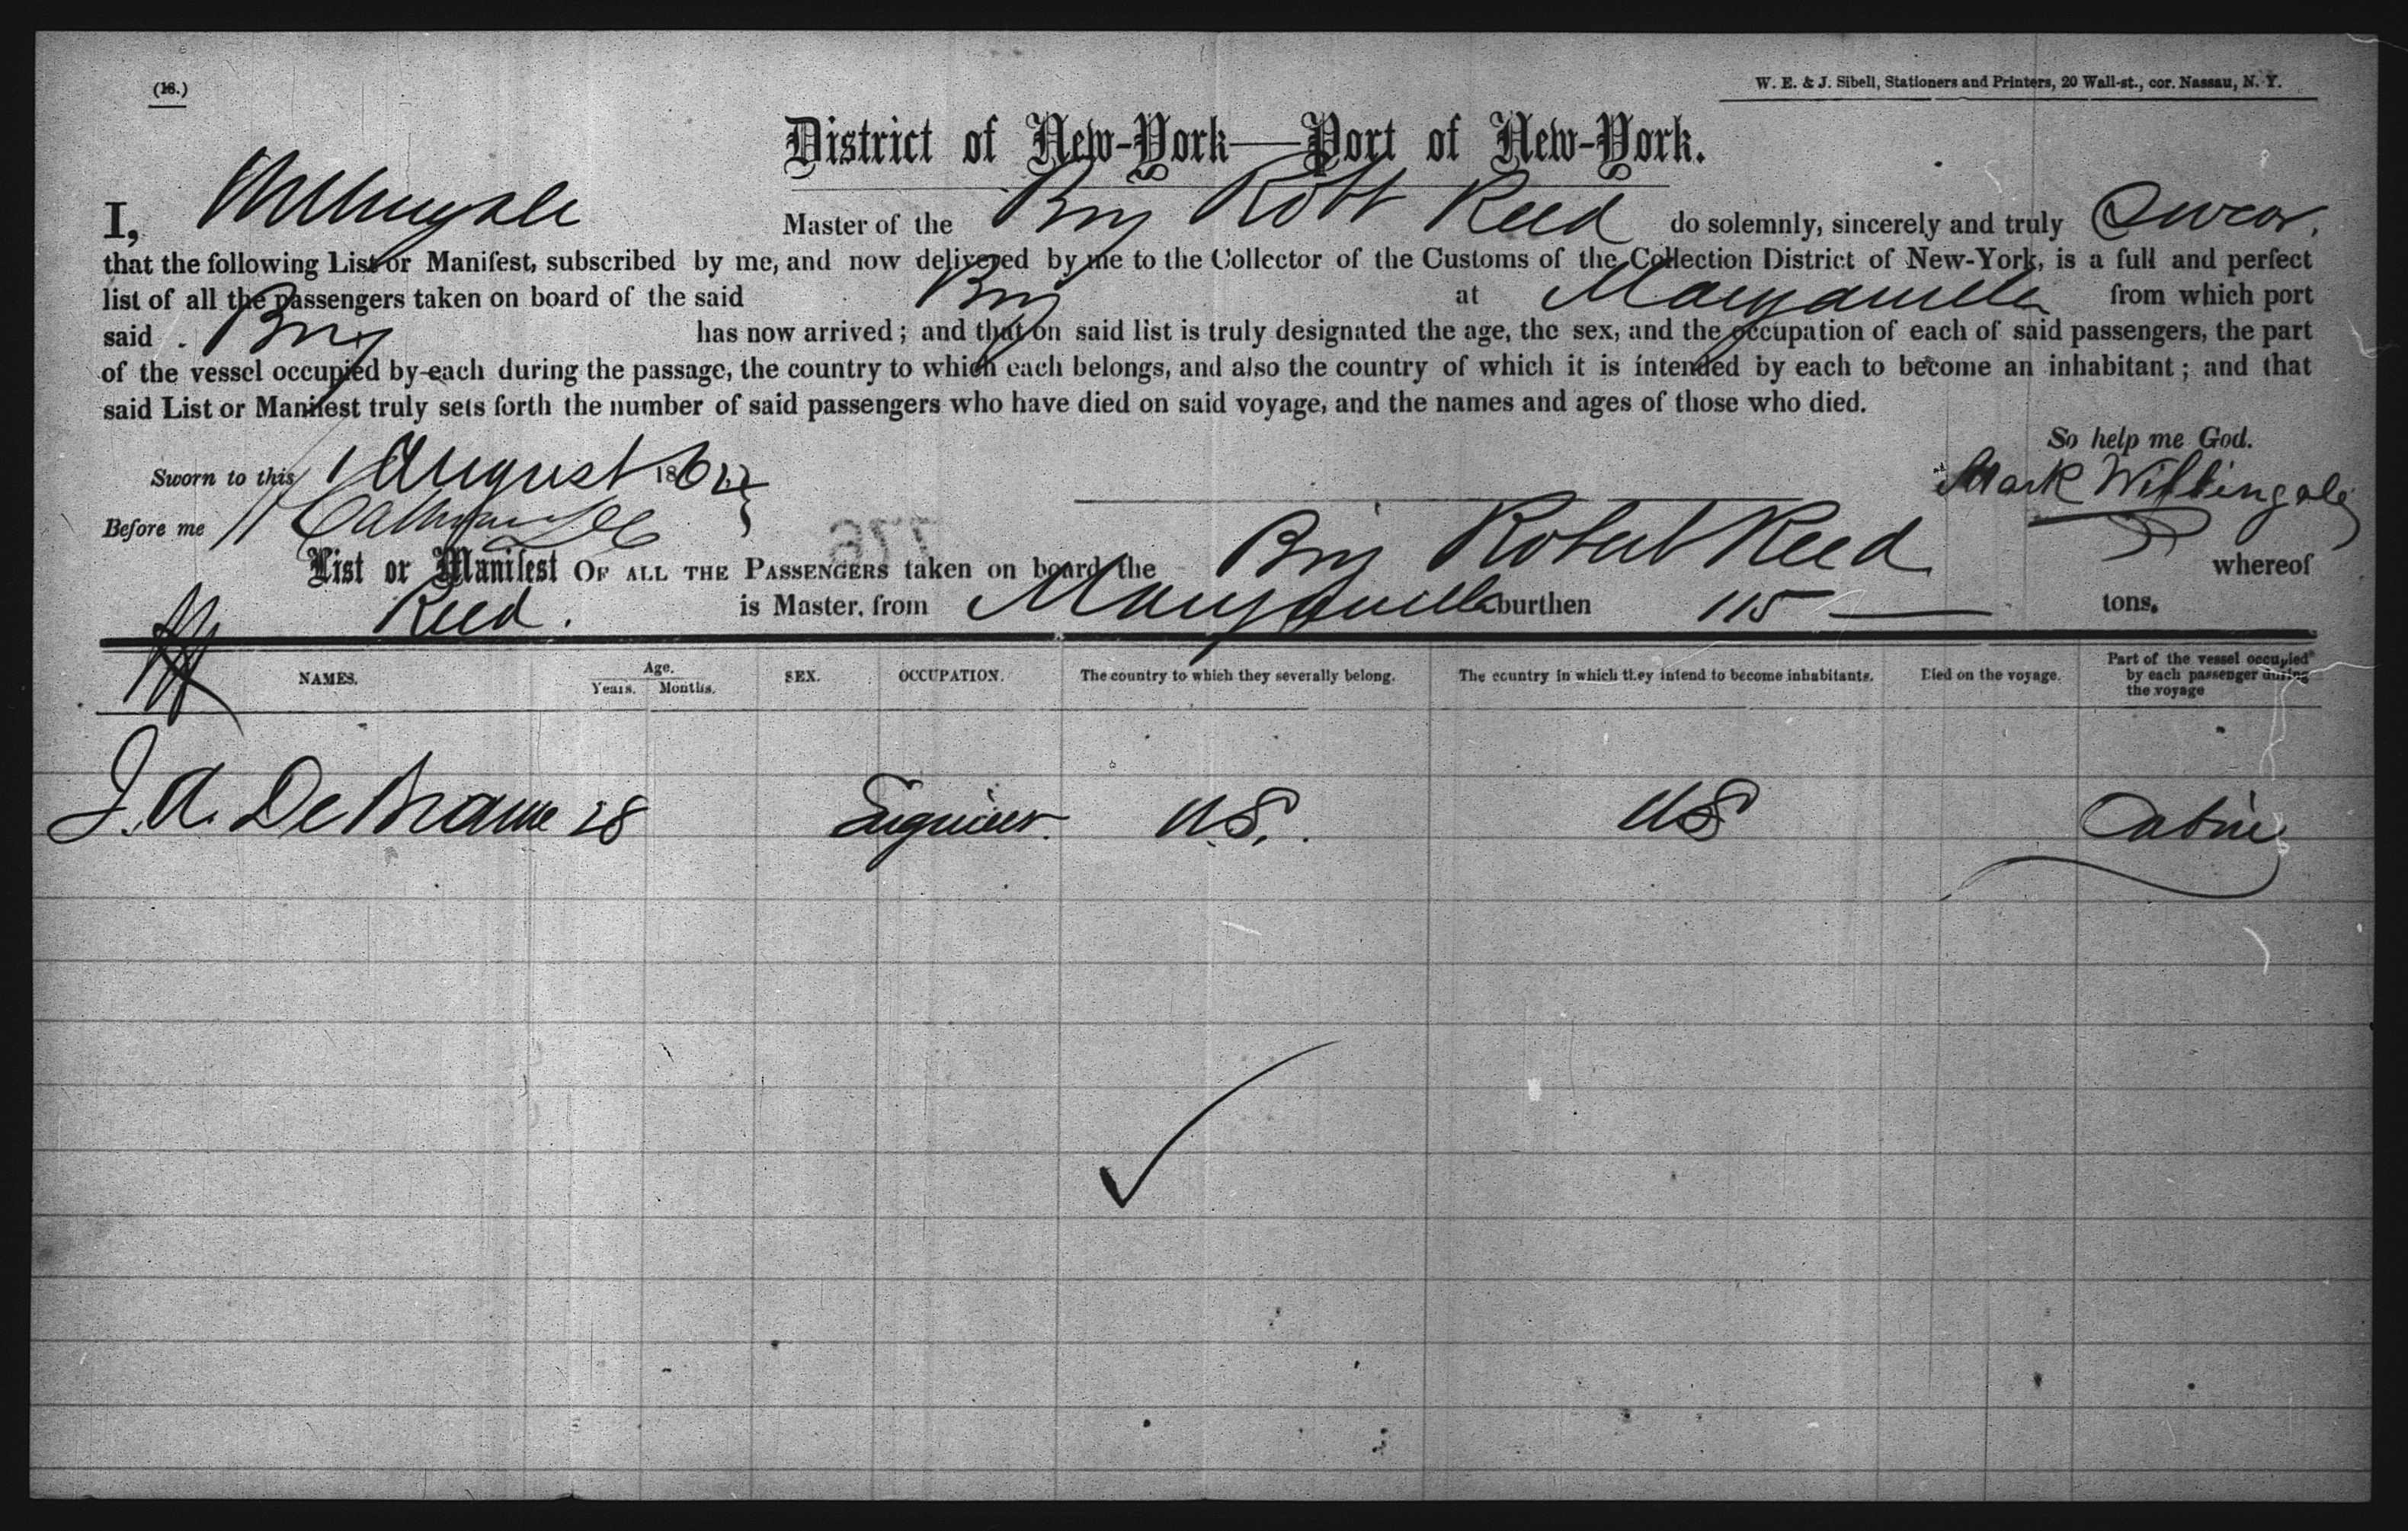 (18.)
W. E. & J. Sibell, Stationers and Printers, 20 Wall-st., cor. Nassau, N. Y.
District of New-York—Port of New-York.
I, Master of the Brig Robt Reed do solemnly, sincerely and truly Swear,
that the following List or Manifest, subscribed by me, and now delivered by me to the Collector of the Customs of the Collection District of New-York, is a full and perfect
list of all the passengers taken on board of the said Brig at from which port
said Brig has now arrived; and that on said list is truly designated the age, the sex, and the occupation of each of said passengers, the part
of the vessel occupied by each during the passage, the country to which each belongs, and also the country of which it is intended by each to become an inhabitant; and that
said List or Manifest truly sets forth the number of said passengers who have died on said voyage, and the names and ages of those who died.
So help me God.
Sworn to this 1 August 186
Mark Willingale
Before me
List or Manifest OF ALL THE PASSENGERS taken on board the Brig Robert Reed whereof
Reed. is Master, from burthen 115 — tons.
NAMES. Age. Years. Months. SEX. OCCUPATION. The country to which they severally belong. The country in which they intend to become inhabitants. Died on the voyage. Part of the vessel occupied by each passenger during the voyage
J. A. De 28 Engineer. U.S. US Cabin